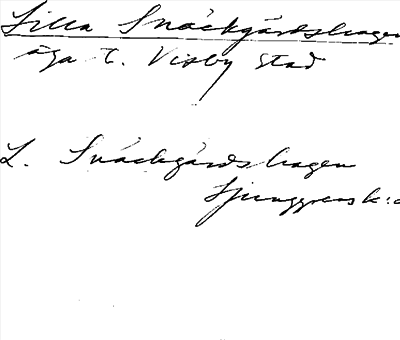 Lilla Snäckgärdshagen
äga t. Visby stad
L. Snäckgärdshagen
Ljunggrensk:a